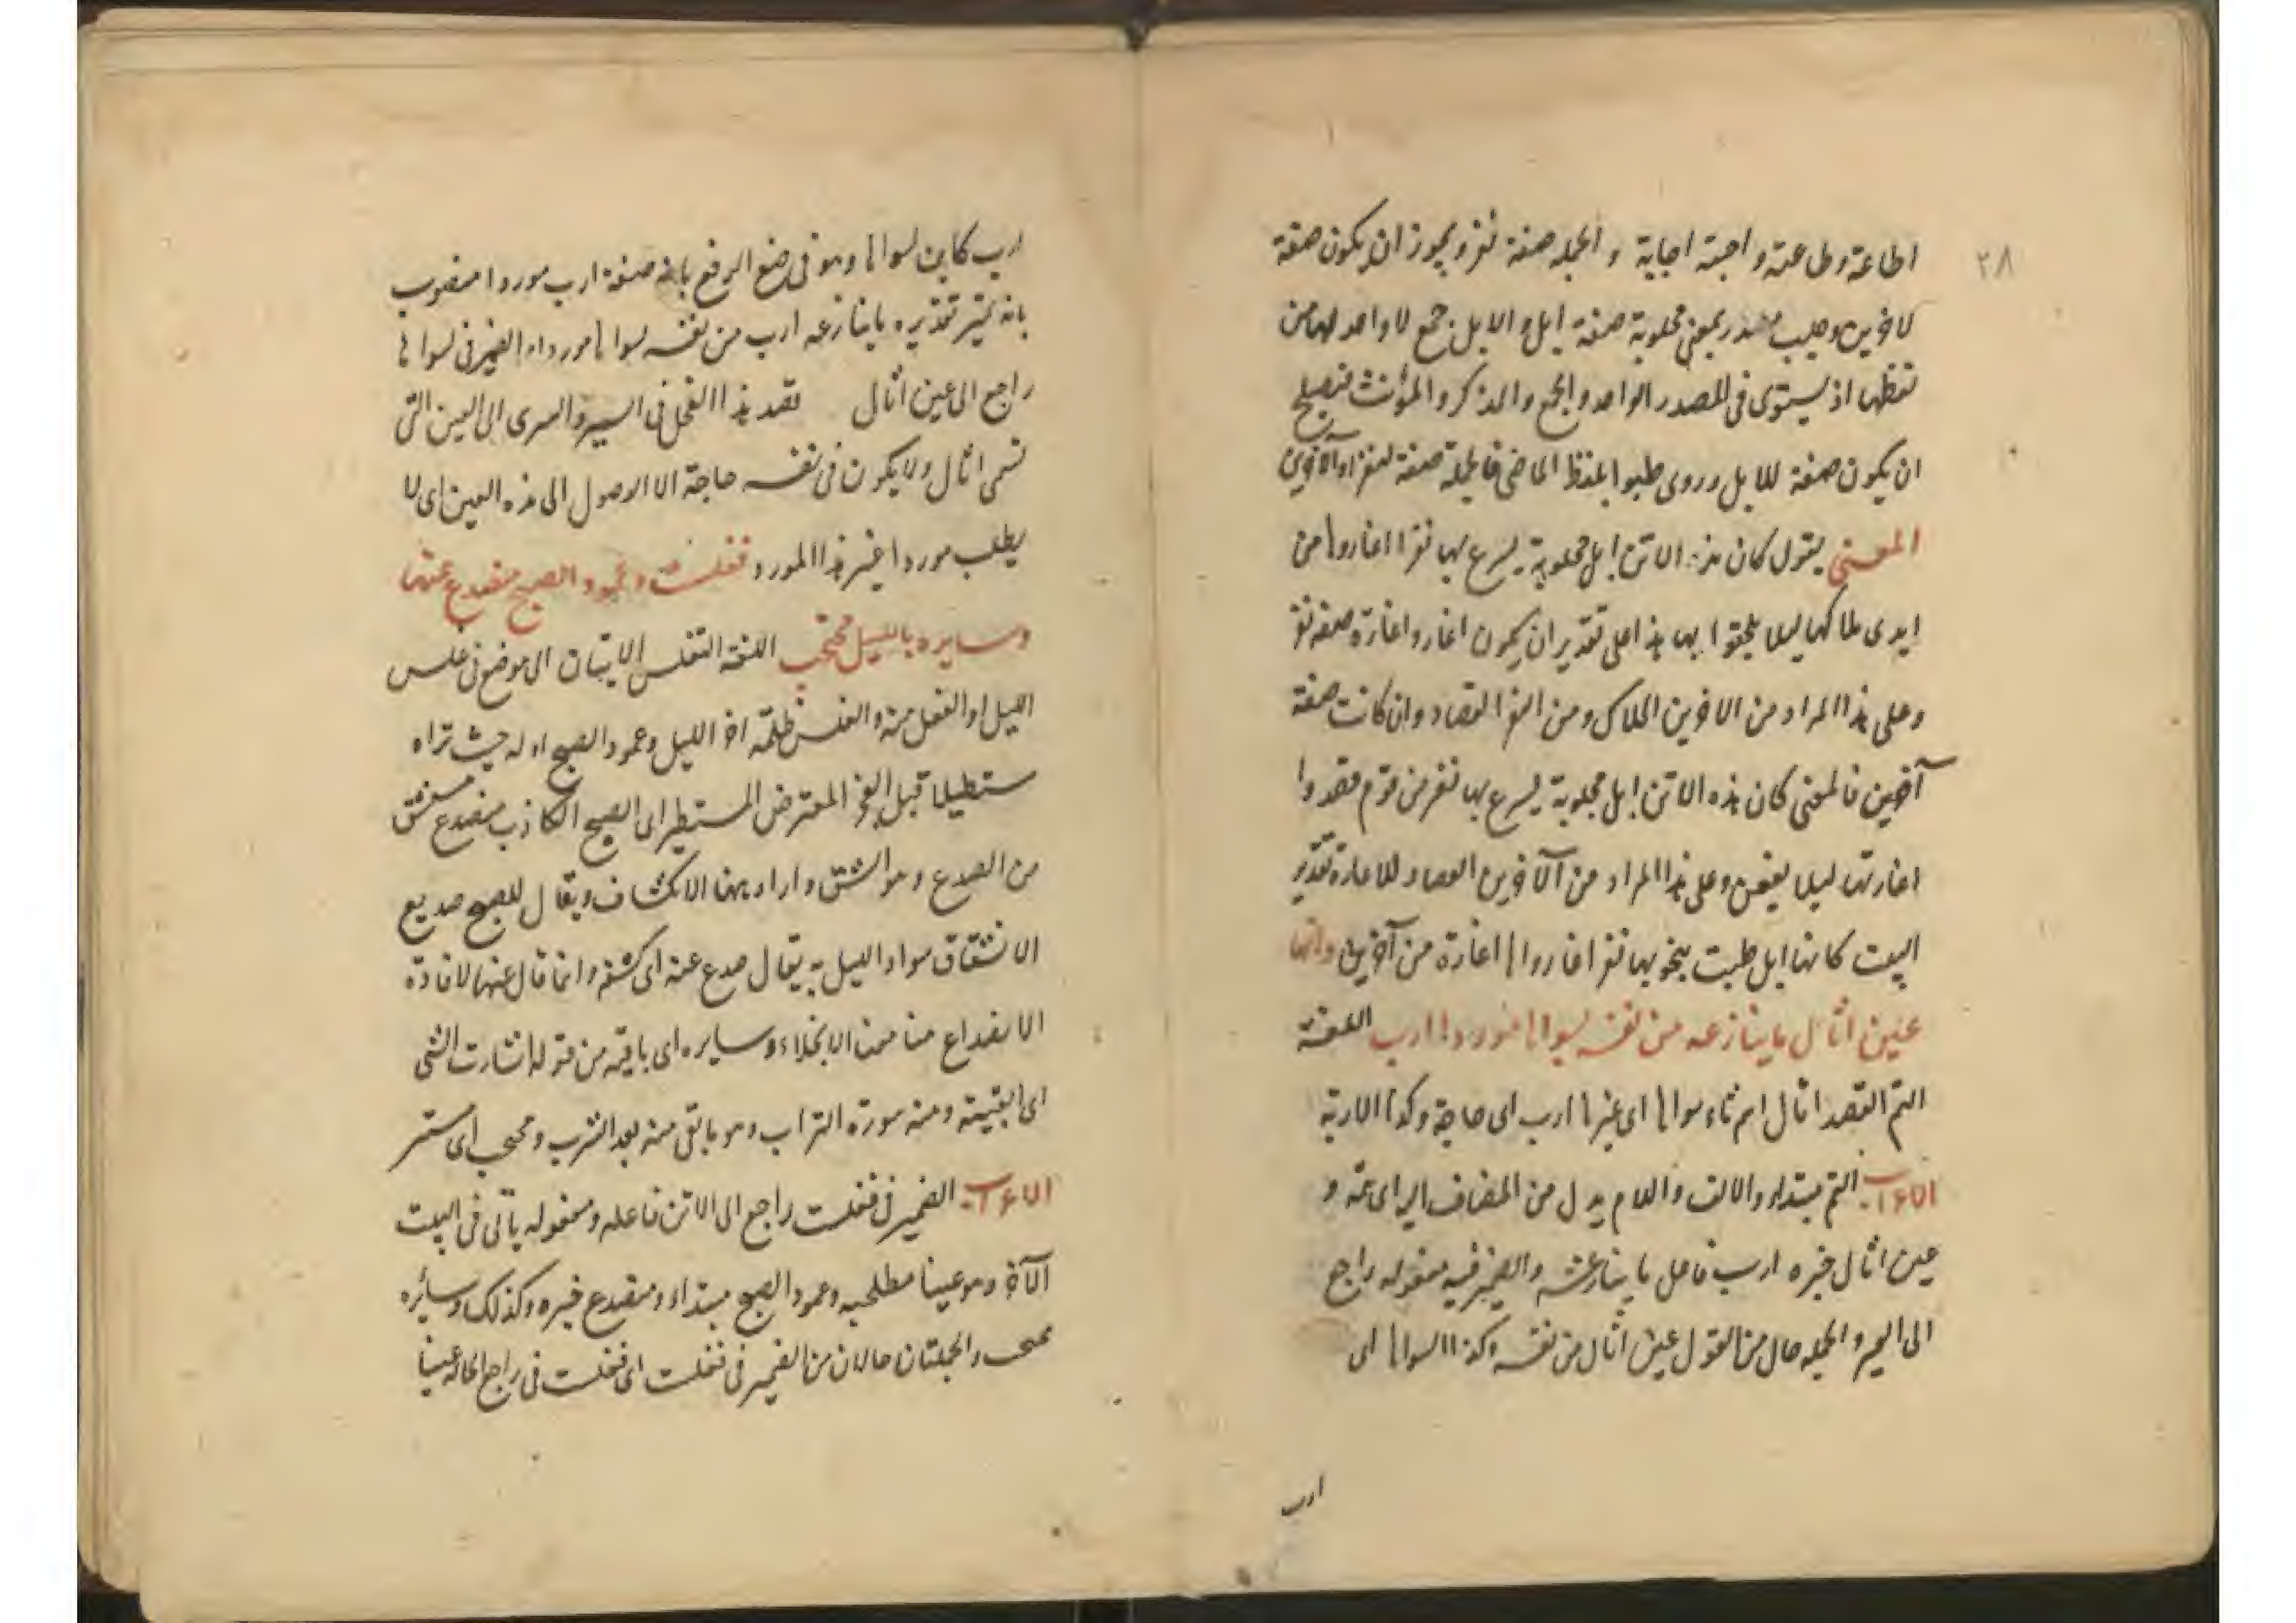 ٢٨
اطاعة وطاعته واجبته اجابة والجمله صفة نفر ويجوز ان يكون صفة
لاخرين وجلب مصدر بمعنى مجلوبة صفة ابل والابل جمع لا واحد لها من
لفظها اذ يستوى فى المصدر الواحد والجمع والمذكر والمؤنث فيصلح
ان يكون صفة للابل وروى جلبوا بلفظ الماضى فالجملة صفة لنفر او لآخرين
المعنى يقول كان هذه الاتن ابل مجلوبة يسرع بها نفر اغاروا من
ايدى ملاكها ليلا يلحقوا بها هذا على تقدير ان يكون اغاروا اغارة صفة نفر
وعلى هذا المراد من الاخرين الملاك ومن النفر القصاد وان كانت صفة
آخرين فالمعنى كان هذه الاتن ابل مجلوبة يسرع بها نفر من قوم قصدوا
اغارتها ليلا وعلى هذا المراد من الآخرين القصاد للاغارة تقدير
البيت كانها ابل جلبت ينجو بها نفر اغاروا اغارة من آخرين والهم
عين اثال ما ينازعه من نفسه لسواها موردا ارب اللغة
الهم القصد اثال اسم ماء سواها اى غيرها ارب اى حاجة وكذا الاربة
الاعراب الهم مبتداء والالف واللام بدل من المضاف اليه اى همه و
عين اثال خبره ارب فاعل ما ينازعه والضمير فيه مفعوله راجع
الى العير والجمله حال من القول عين اثال من نفسه وكذا لسواها اى
ارب
ارب كاين لسواها وهو فى موضع الرفع بانه صفة ارب موردا منصوب
بانه تميز تقديره ما ينازعه ارب من نفسه لسواها موردا والضمير فى لسواها
راجع الى عين اثال يقصد هذا الفحل فى السير والسرى الى العين التى
تسمى اثال ولا يكون فى نفسه حاجة الا الوصول الى هذه العين اى لا
يطلب موردا غير هذا المورد فغلست وعمود الصبح منصدع عنها
وسايره بالليل محتجب اللغة التغليس الاتيان الى موضع فى غلس
الليل او الفعل منه والغلس ظلمة اخر الليل وعمود الصبح اوله حيث تراه
مستطيلا قبل الفجر المعترض المستطير اى الصبح الكاذب منصدع منشق
من الصدع وهو الشق واراد بهنا الانكشاف ويقال للصبح صديع
لانشقاق سواد الليل به يقال صدع عنه اى كشفه وانما قال عنها لافادة
الانصداع هنا معنى الانجلاء وسايره اى باقيه من قوله اسارت الشى
اى ابقيته ومنه سورة التراب وهو ما بقى منه بعد الشرب ومحتجب اى مستتر
الاعراب الضمير فى فغلست راجع الى الاتن فاعله ومفعوله ياتى فى البيت
الآخر وهو عينا مطلحبه وعمود الصبح مبتداء ومنصدع خبره وكذلك وسائره
محتجب والجملتان حالان من الضمير فى فغلست اى فغلست عينا